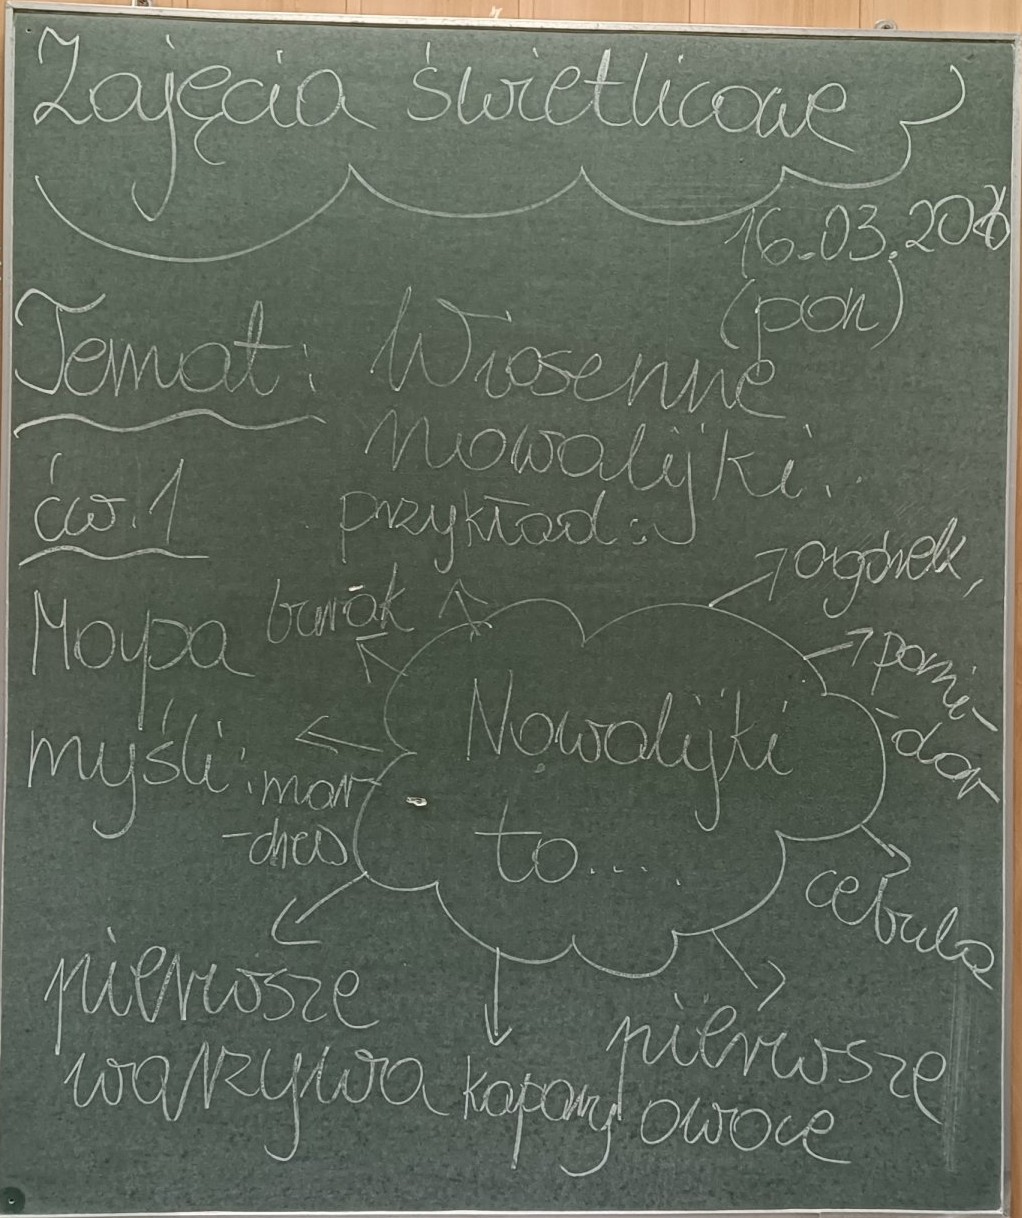 Zajęcia świetlicowe
16.03.2026
(pon)
Temat: Wiosenne
nowalijki.
ćw. 1
przykład:
Mapa
myśli:
Nowalijki
to....
burak
ogórek,
pomi-
-dor
cebula
mar-
-chew
pierwsze
warzywa
kapary
pierwsze
owoce